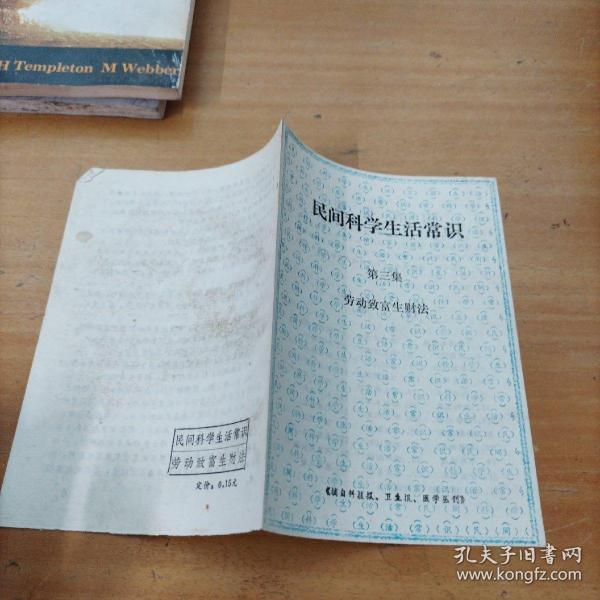 H Templeton M Webber
民间科学生活常识
第三集
劳动致富生财法
《摘自科技报、卫生报、医学丛刊》
民间科学生活常识
劳动致富生财法
定价：0.15元
孔夫子旧书网
www.kongfz.com